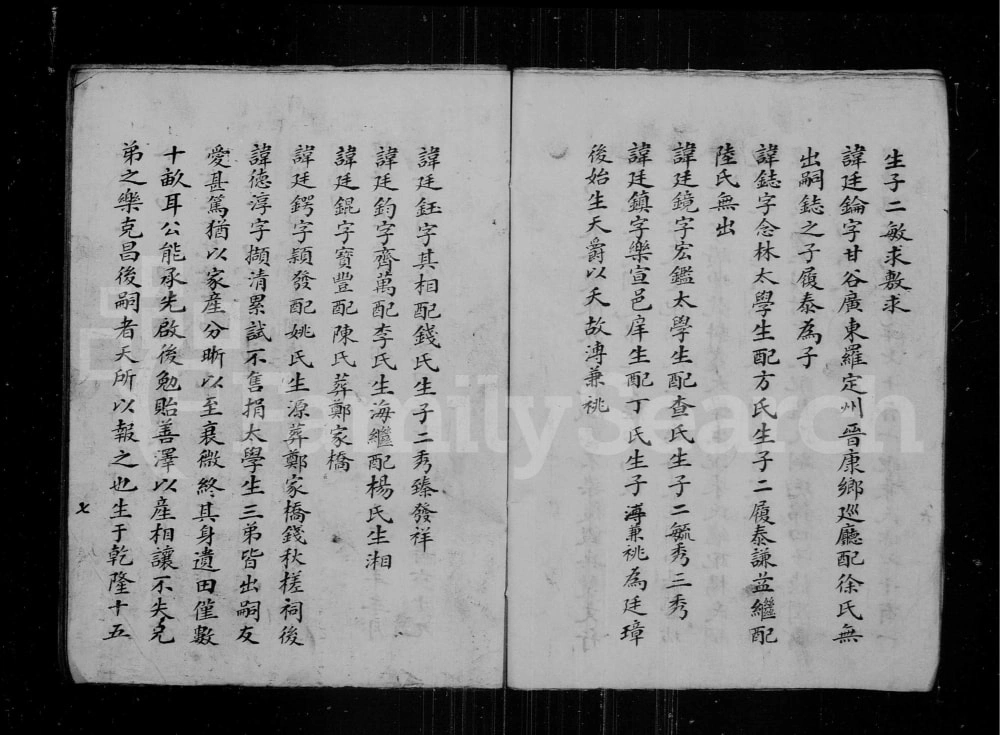 生子二敏求敷求
諱廷錀字甘谷廣東羅定州晉康鄉巡廳配徐氏無
出嗣鋕之子履泰為子
諱鋕字念林太學生配方氏生子二履泰謙益繼配
陸氏無出
諱廷鏡字宏鑑太學生配查氏生子二毓秀三秀
諱廷鎮字樂宣邑庠生配丁氏生子漙兼祧為廷璋
後始生天爵以夭故漙兼祧
諱廷鈺字其相配錢氏生子二秀臻發祥
諱廷鈞字齊萬配李氏生海繼配楊氏生湘
諱廷錕字寶豐配陳氏葬鄭家橋
諱廷鍔字穎發配姚氏生源葬鄭家橋錢秋槎祠後
諱德淳字擷清累試不售捐太學生三弟皆出嗣友
愛甚篤猶以家產分晰以至衰微終其身遺田僅數
十畝耳公能承先啟後勉貽善澤以產相讓不失兄
弟之樂克昌後嗣者天所以報之也生于乾隆十五
FamilySearch